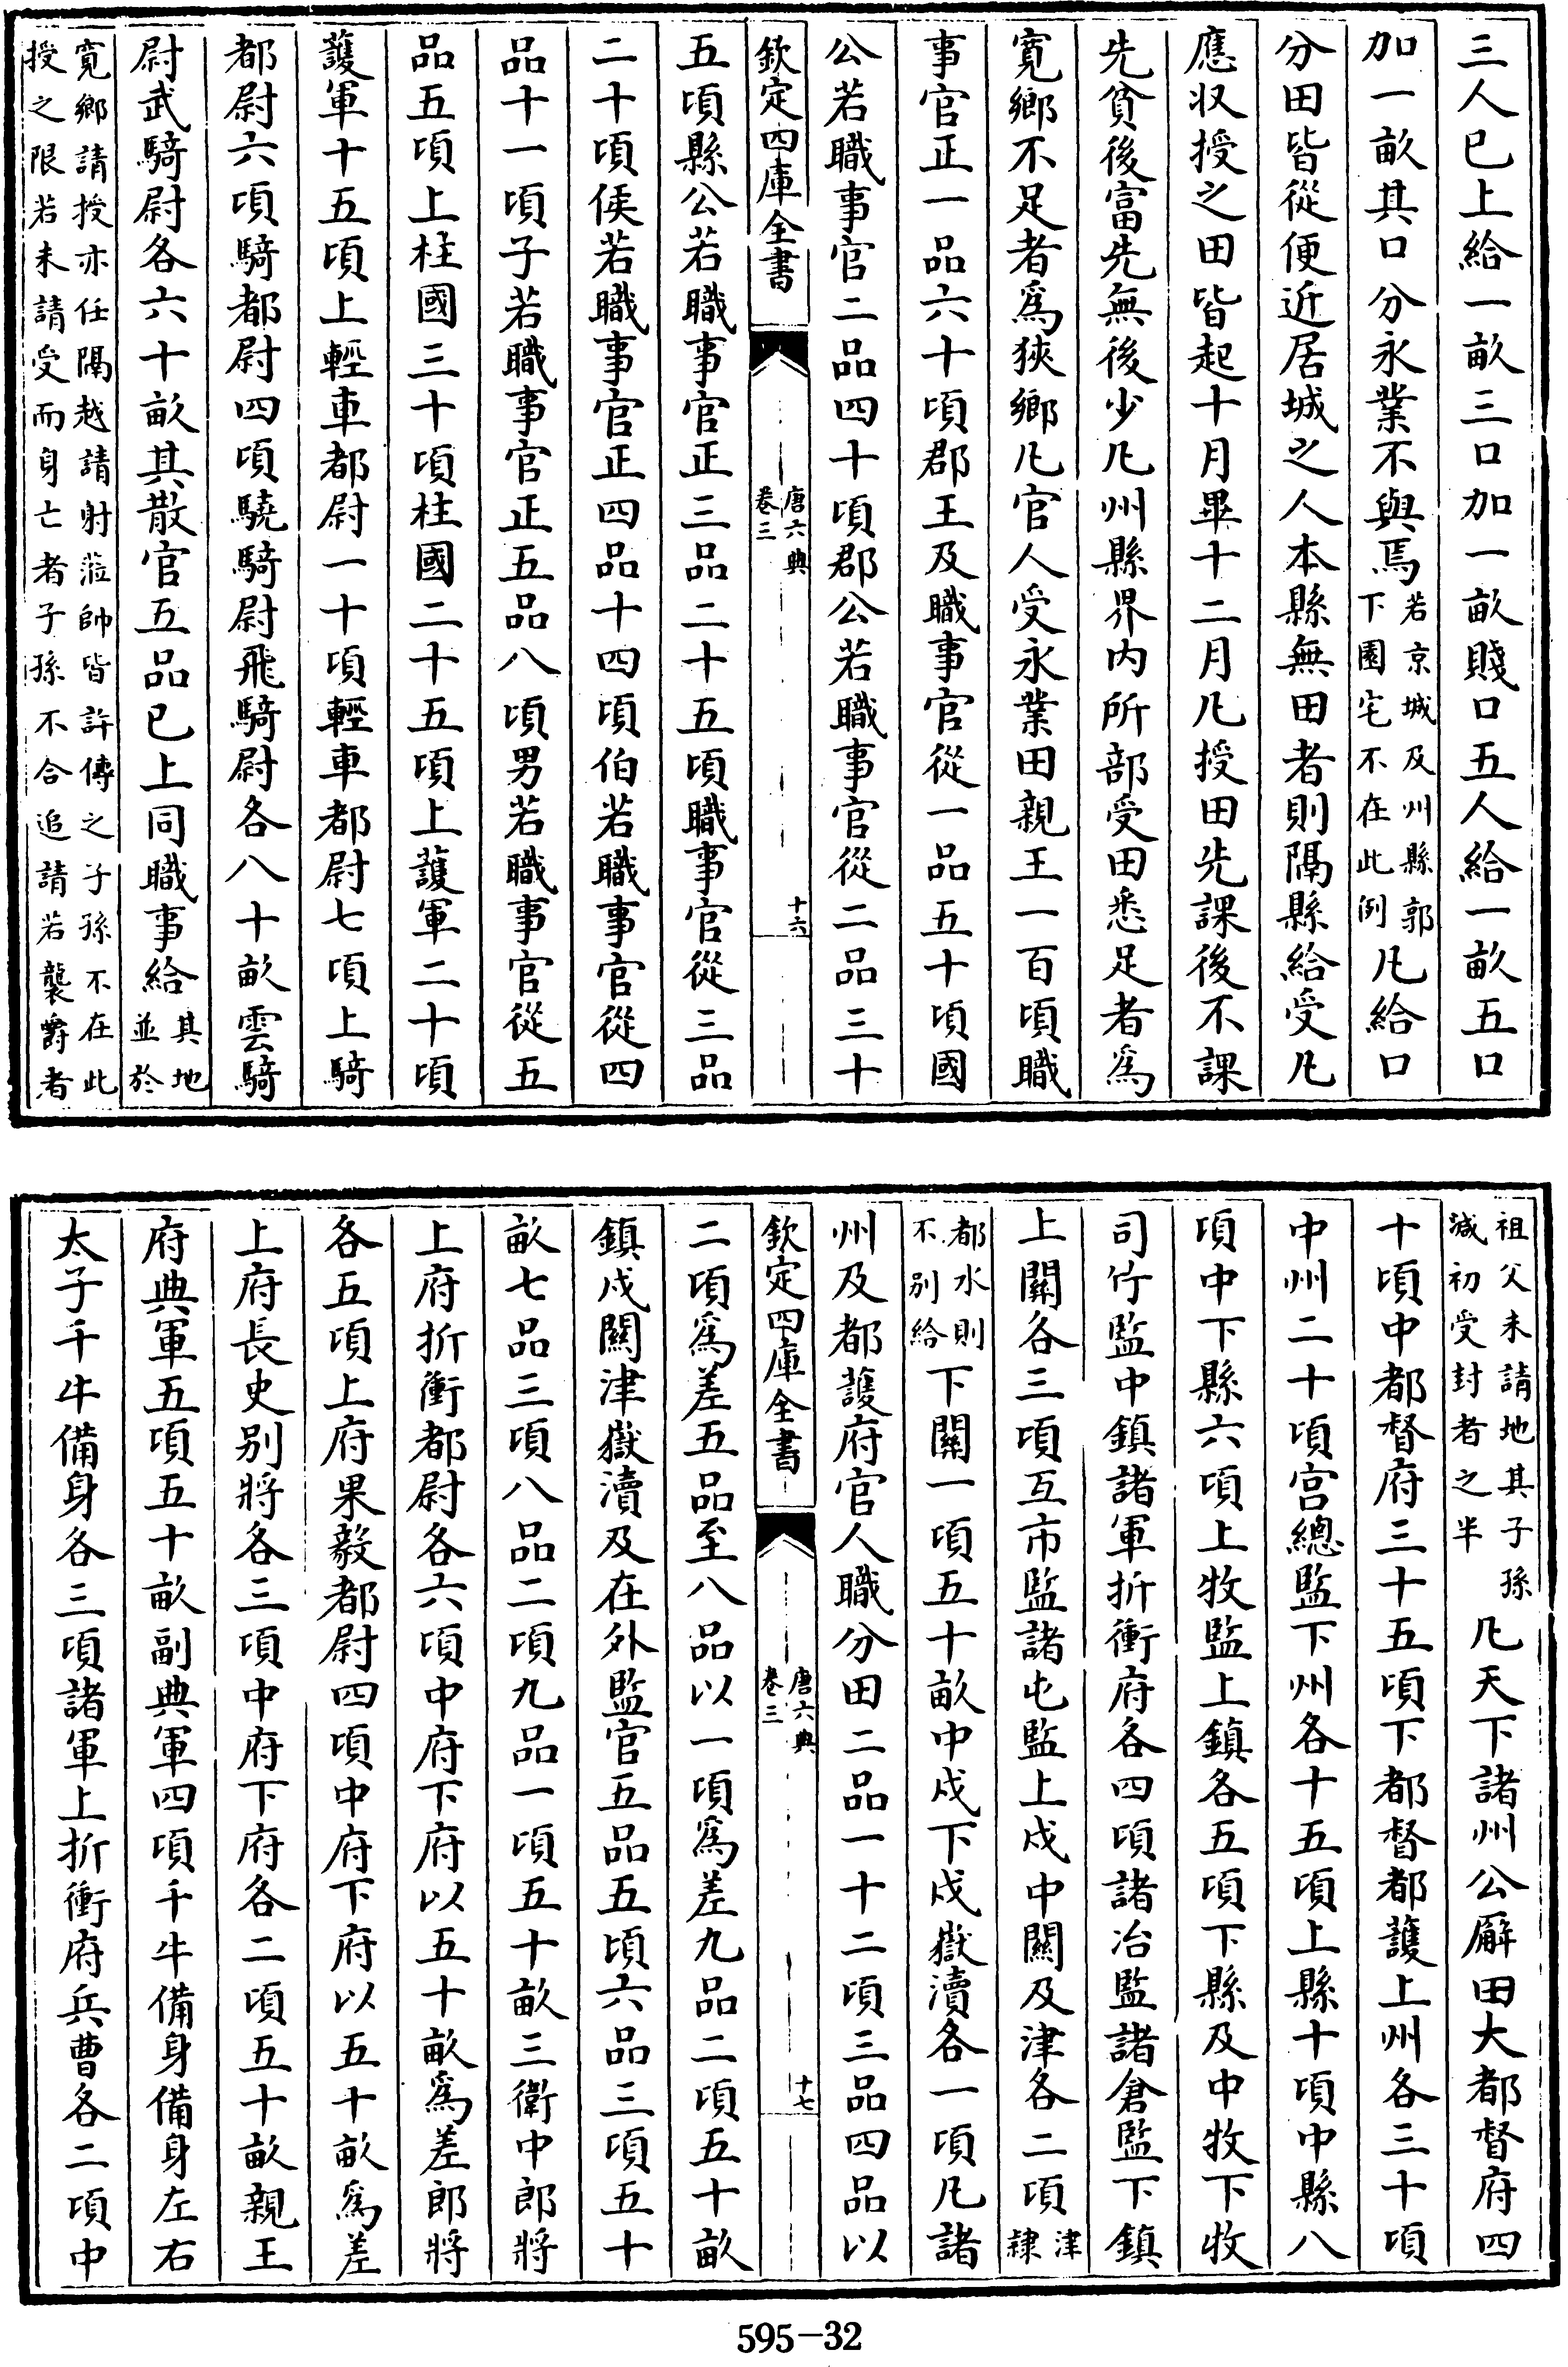 三人已上給一畝三口加一畝賤口五人給一畝五口
加一畝其口分永業不與焉若京城及州縣郭下園宅不在此例凡給口
分田皆從便近居城之人本縣無田者則隔縣給受凡
應収授之田皆起十月畢十二月凡授田先課後不課
先貧後富先無後少凡州縣界內所部受田悉足者爲
寛鄉不足者爲狹鄉凡官人受永業田親王一百頃職
事官正一品六十頃郡王及職事官從一品五十頃國
公若職事官二品四十頃郡公若職事官從二品三十
欽定四庫全書
唐六典
卷三
十六
五頃縣公若職事官正三品二十五頃職事官從三品
二十頃侯若職事官正四品十四頃伯若職事官從四
品十一頃子若職事官正五品八頃男若職事官從五
品五頃上柱國三十頃柱國二十五頃上護軍二十頃
護軍十五頃上輕車都尉一十頃輕車都尉七頃上騎
都尉六頃騎都尉四頃驍騎尉飛騎尉各八十畝雲騎
尉武騎尉各六十畝其散官五品已上同職事給其地並於
寛鄉請授亦任隔越請射蒞帥皆許傳之子孫不在此
授之限若未請受而身亡者子孫不合追請若襲爵者
祖父未請地其子孫
減初受封者之半
凡天下諸州公廨田大都督府四
十頃中都督府三十五頃下都督都護上州各三十頃
中州二十頃宮總監下州各十五頃上縣十頃中縣八
頃中下縣六頃上牧監上鎮各五頃下縣及中牧下牧
司竹監中鎮諸軍折衝府各四頃諸冶監諸倉監下鎮
上關各三頃互市監諸屯監上戍中關及津各二頃津隸
都水則不別給下關一頃五十畝中戍下戍嶽瀆各一頃凡諸
州及都護府官人職分田二品一十二頃三品四品以
欽定四庫全書
唐六典
卷三
十七
二頃爲差五品至八品以一頃爲差九品二頃五十畝
鎮戍關津嶽瀆及在外監官五品五頃六品三頃五十
畝七品三頃八品二頃九品一頃五十畝三衛中郎將
上府折衝都尉各六頃中府下府以五十畝爲差郎將
各五頃上府果毅都尉四頃中府下府以五十畝爲差
上府長史别將各三頃中府下府各二頃五十畝親王
府典軍五頃五十畝副典軍四頃千牛備身備身左右
太子千牛備身各三頃諸軍上折衝府兵曹各二頃中
595-32